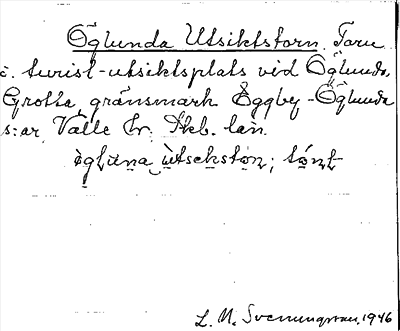 Öglunda Utsiktstorn. Torn
o. turist-utsiktsplats vid Öglunda
Grotta, gränsmark Eggby-Öglunda
s:ar, Valle hr. Skb. län.
L. M. Svenungsson, 1946